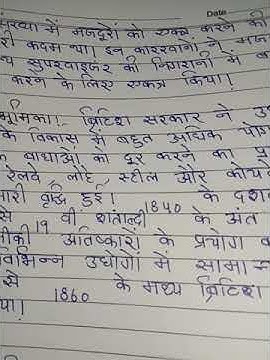 Date
संख्या में मजदूरों को एकत्र करने की
री कदम था। इन कारखानों ने मज
य सुपरवाइजर की निगरानी में क
करने के लिए एकत्र किया।
भूमिका:- ब्रिटिश सरकार ने उ
के विकास में बहुत अधिक योग
बाधाओं को दूर करने का प्र
रेलवे लोहे स्टील और कोय
नारी वृद्धि हुई। 1840 के दश
से 19 वीं शताब्दी के अंत
नीकी अविष्कारों के प्रयोग व
विभिन्न उद्योगों में सामान
से 1860 के मध्य ब्रिटिश
या।